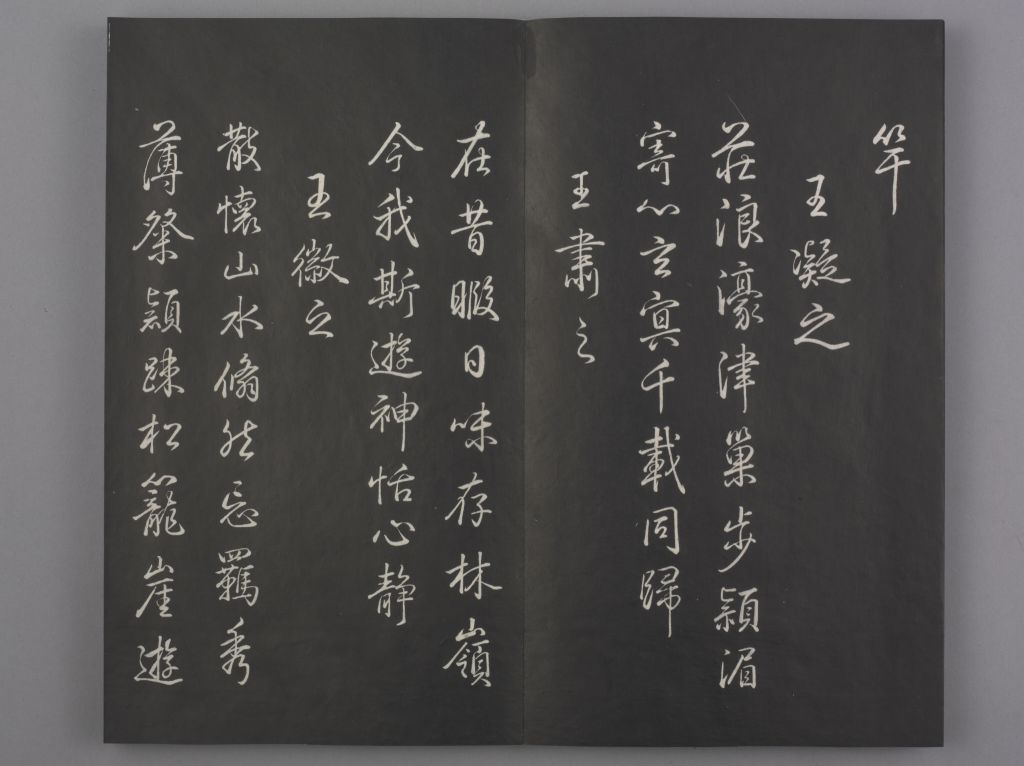 竿
王凝之
莊浪濠津巢步潁湄
寄心玄冥千載同歸
王肅之
在昔暇日味存林嶺
今我斯遊神怡心静
王徽之
散懷山水翛然忘羈秀
薄粲穎疎松籠崖遊